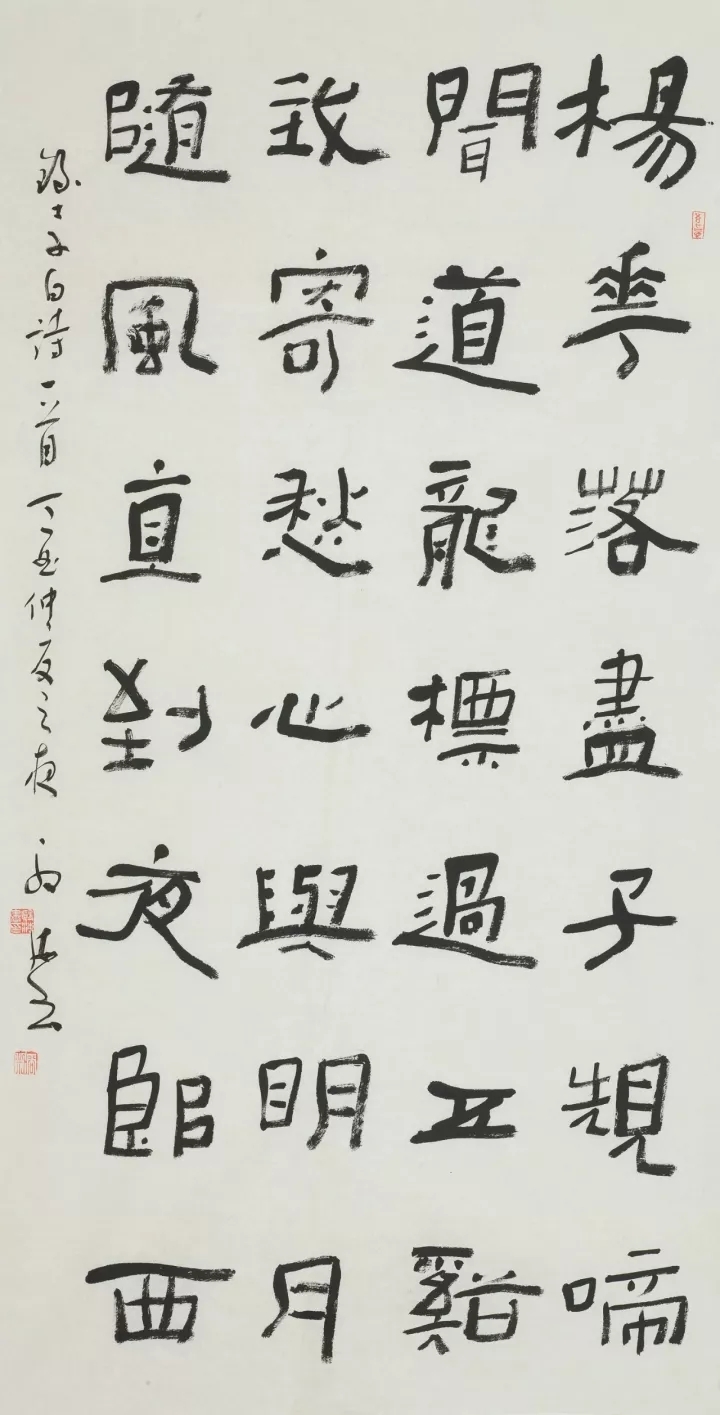 楊華落盡子規啼
聞道龍標過五谿
我寄愁心與明月
隨風直到夜郎西
錄李白詩一首丁酉仲夏之夜